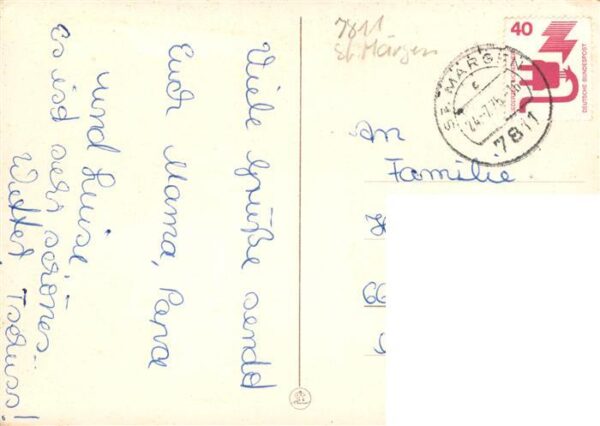 Viele Grüße sendet
Euch Mama, Papa
und Luise.
Es isd serr schönes
Wetter Tschüss!
7811
St. Märgen
40
DEUTSCHE BUNDESPOST
ST. MÄRGEN
c
24.-7.
7811
An
Familie
66